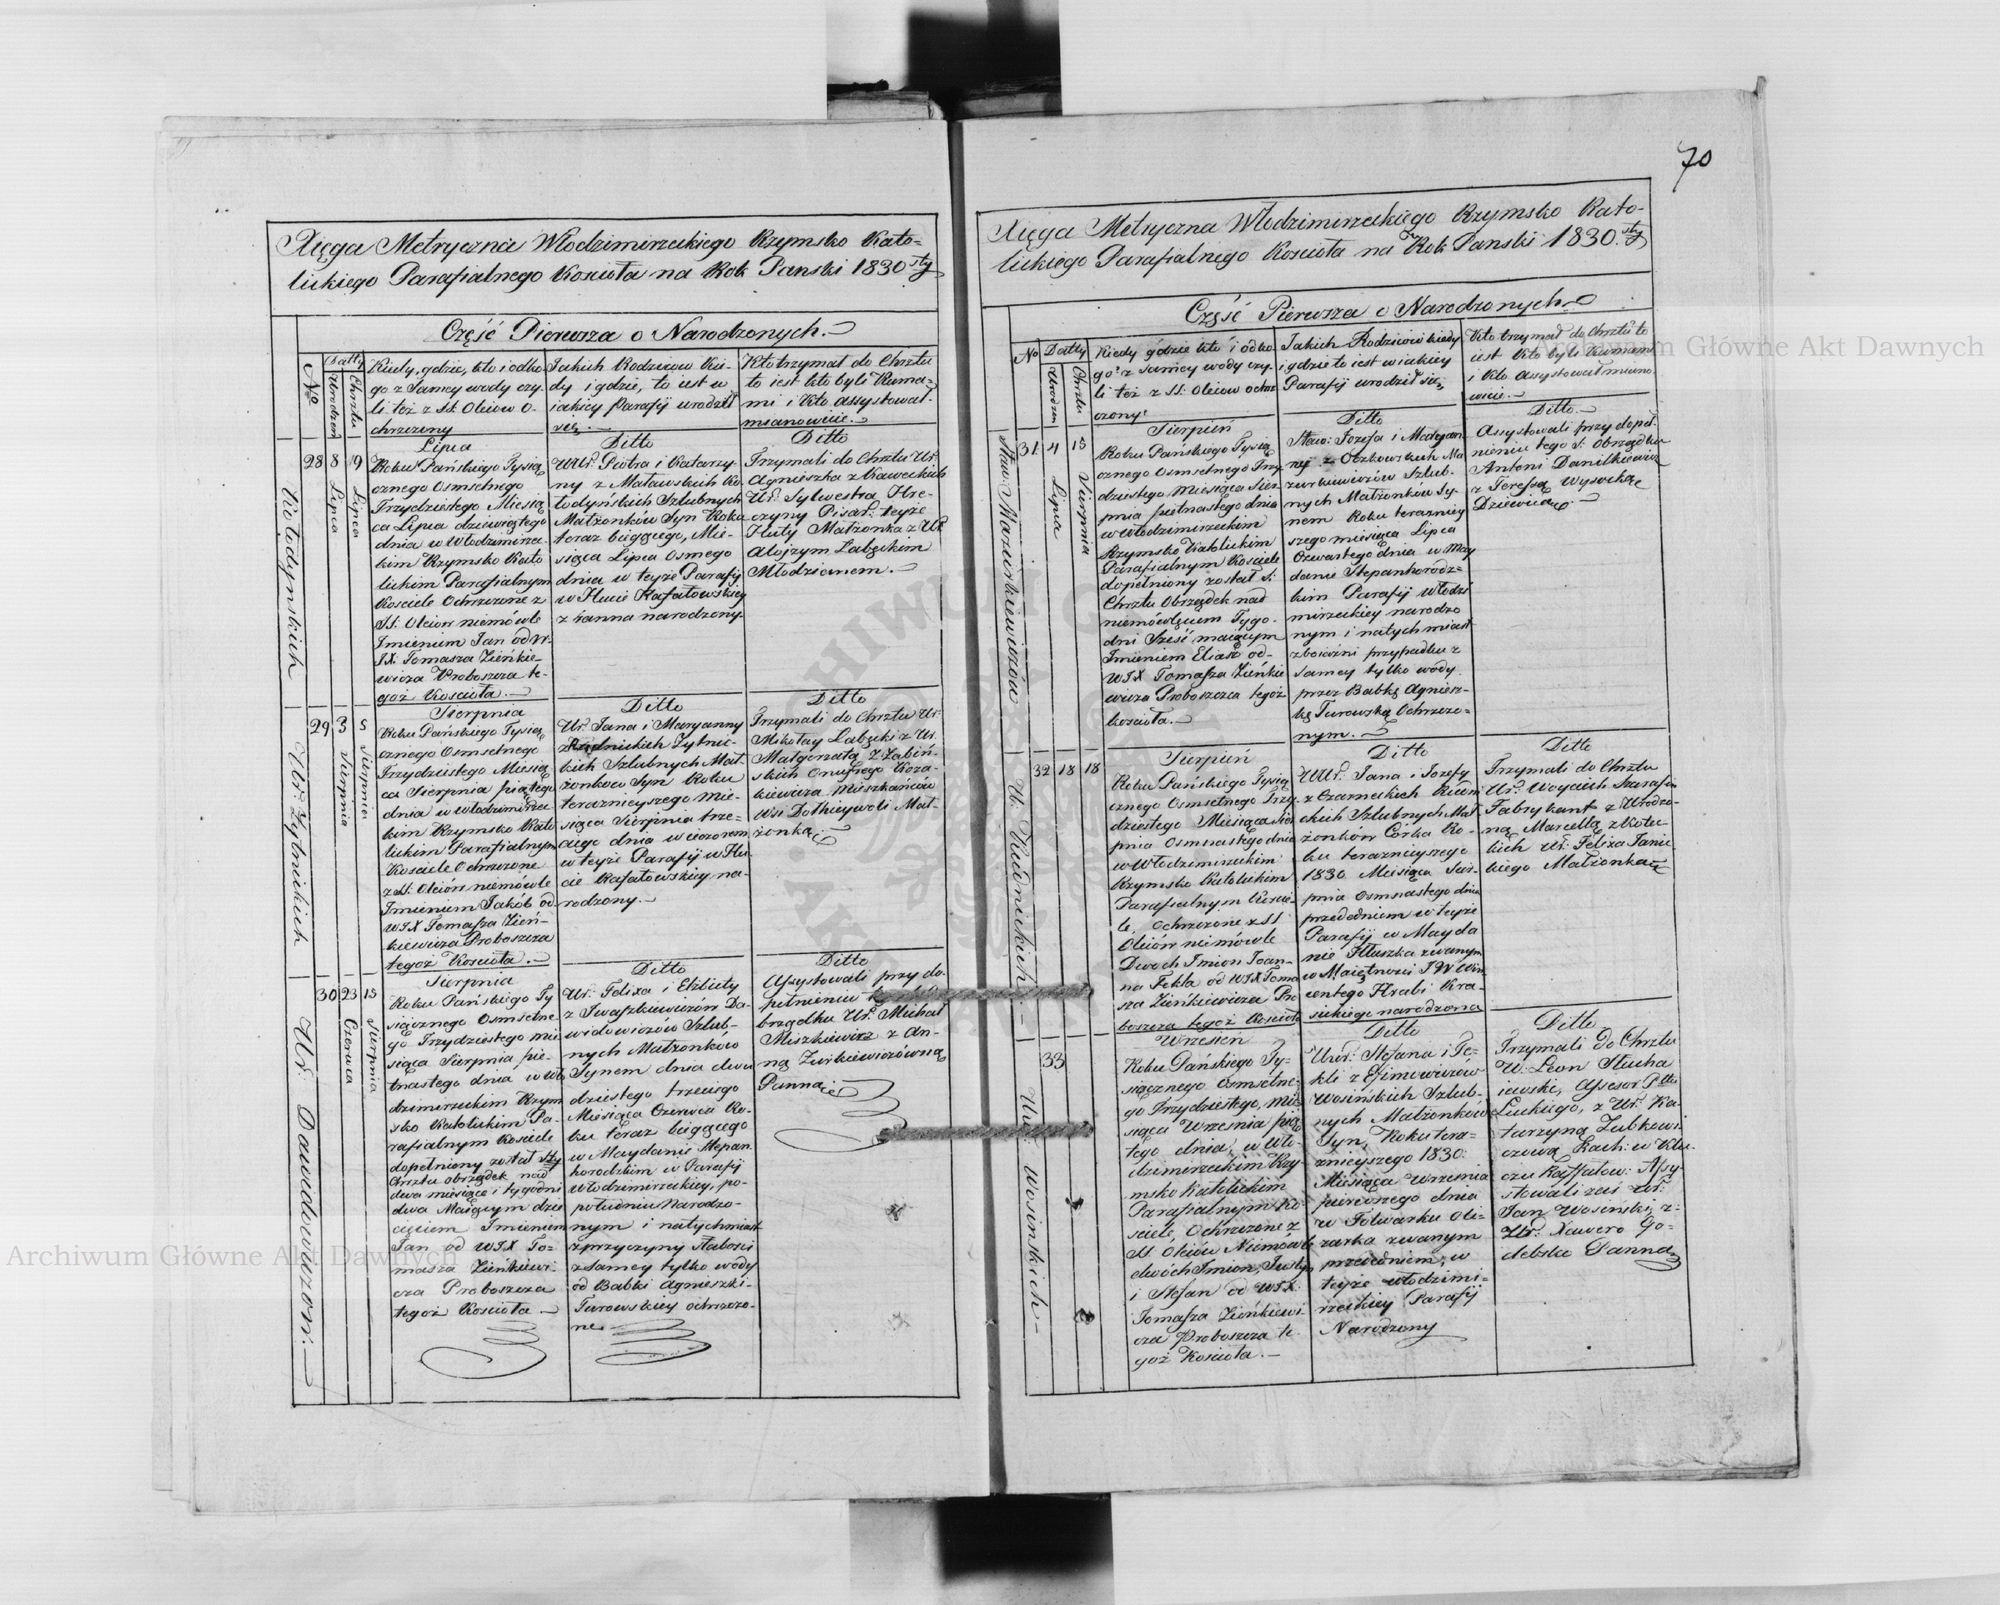 70
Xięga Metryczna Włodzimirzeckiego Rzymsko Kato-
lickiego Parafialnego Kościoła na Rok Panski 1830 sty
Część Pierwsza o Narodzonych.
No
Datty
Urodzeń
Chrztu
Kiedy, gdzie, kto i od ko-
go z Samey wody czy-
li też z SS. Oleiow o-
chrzczony
Jakich Rodziców Kie-
dy i gdzie, to iest w
iakiey Parafij urodził
się.
Kto trzymał do Chrztu
to iest kto byli Kuma-
mi i Kto assystował
mianowicie.
Kołodynskich
28
8 Lipca
9 Lipca
Lipca
Roku Pańskiego Tysią
cznego Osmsetnego
Trzydziestego Miesią
ca Lipca dziewiątego
dnia w Włodzimirzec
kim Rzymsko Kato
lickim Parafialnym
Kosciele Ochrzczone z
SS. Oleiow niemówle
Imieniem Jan od W
JX. Tomasza Zieńkie-
wicza Proboszcza te-
goż Kościoła.
Ditto
WUr. Piotra i Katarzy-
ny z Maławskich Ko
łodyńskich Szlubnych
Małżonków Syn Roku
teraz bieggcego, Mie-
siąca Lipca Osmego
dnia w teyże Parafij
w Hucie Rafałowskiey
z ranna narodzony.
Ditto
Trzymali do Chrztu Ur.
Agnieszka z Kaweckich
Ur. Sylwestra Hre-
czyny Pisar: teyże
Huty Małżonka z Ur.
Aloyzym Labęckim
Młodzianem.
Ur. Zytnickich
29
3 Sierpnia
5 Sierpnia
Sierpnia
Roku Pańskiego Tysią
cznego Osmsetnego
Trzydziestego Miesią
ca Sierpnia piątego
dnia w Włodzimirzec
kim Rzymsko Kato
lickim Parafialnym
Kosciele Ochrzczone
z SS. Oleiów niemówle
Imieniem Jakób od
WJX Tomasza Zień-
kiewicza Proboszcza
tegoż Kościoła.
Ditto
Ur. Jana i Maryanny
z Rudnickich Zytnic-
kich Szlubnych Mał-
żonkow Syn Roku
teraznieyszego Mie-
siąca Sierpnia trze-
ciego dnia wieczorem
w teyże Parafij w Hu
cie Rafałowskiey na-
rodzony.
Ditto
Trzymali do Chrztu Ur.
Mikołay Labęcki z Ur.
Małgorzatą z Zabiń-
skich Onufrego Koza-
kiewicza Mieszkańców
Wsi Dołhieywoli Mał-
żonką.
Ur. Dawidowiczow.
30
23 Czerwca
15 Sierpnia
Sierpnia
Roku Pańskiego Ty
siącznego Osmsetne
go Trzydziestego mie
siąca Sierpnia pie-
tnastego dnia w Wło
dzimirzeckim Rzym
sko Katolickim Pa-
rafialnym Kosciele
dopełniony został Sty
Chrztu obrządek nad
dwa miesiące i tygodni
dwa Maiącym dzie
cięciem Imieniem
Jan od WJX To-
masza Zieńkiewi-
cza Proboszcza
tegoż Kościoła
Ditto
Ur. Felixa i Elżbiety
z Iwaszkiewiczów Da-
widowiczów Szlub-
nych Małżonków
Synem dnia dwu
dziestego trzeciego
Miesiąca Czerwca Ro-
ku teraz bieggcego
w Maydanie Stepan
horodzkim w Parafij
Włodzimirzeckiey, po-
południu Narodzo-
nym i natychmiast
z przyczyny słabości
z Samey tylko wody
od Babki Agnieszki
Turowskiey ochrzczo-
ne
Ditto
Assystowali przy do-
pełnieniu
brządku Ur. Michał
Miszkiewicz z An-
ną Zurkiewiczówną
Panną
Xięga Metryczna Włodzimirzeckiego Rzymsko Kato-
lickiego Parafialnego Kościoła na Rok Panski 1830. sty
Część Pierwsza o Narodzonych.
No
Datty
Urodzeń
Chrztu
Kiedy gdzie kto i od ko
go z samey wody czy-
li też z SS. Oleiow ochrz
czony
Jakich Rodziców kiedy
i gdzie to iest w iakiey
Parafij urodził się,
Kto trzymał do Chrztu to
iest Kto byli Kumami
i Kto assystował miano-
wicie.
Sław: Mazurkiewiczów
31
4 Lipca
15 Sierpnia
Sierpień
Roku Pańskiego Tysią
cznego Osmsetnego Trzy
dziestego Miesiąca Sier
pnia pietnastego dnia
w Włodzimirzeckim
Rzymsko Katolickim
Parafialnym Kosciele
dopełniony został S.
Chrztu Obrządek nad
niemówlęciem Tygo-
dni Sześć maiącym
Imieniem Eliasz od-
WJX Tomasza Zieńkie
wicza Proboszcza tegoż
Kościoła.
Ditto
Sław: Jozefa i Maryan
ny z Oczkowskich Ma
zurkiewiczów Szlub-
nych Małżonków Sy-
nem Roku teraznie
szego miesiąca Lipca
Czwartego dnia w May
danie Stepanhorodz-
kim Parafij Włodzi
mirzeckiey narodzo
nym i natychmiast
z boiazni przypadku z
samey tylko wody
przez Babkę Agniesz-
kę Turowską Ochrzczo-
nym.
Ditto
Assystowali przy dopeł-
nieniu tego S. Obrządku
Antoni Danilkiewicz
z Teressą Wysocką
Dziewicą
Ur. Rudnickich
32
18
18
Sierpień
Roku Pańskiego Tysią
cznego Osmsetnego Trzy-
dziestego Miesiąca Sier
pnia Osmnastego dnia
w Włodzimirzeckim
Rzymsko Katolickim
Parafialnym Koscie
le, Ochrzczone z SS
Oleiów niemówle
Dwoch Imion Joan-
na Tekla od WJX Toma
sza Zieńkiewicza Pro
boszcza tegoż Kościoła
Ditto
WUr. Jana i Jozefy
z Czarneckich Rudni
ckich Szlubnych Mał
żonków Corka Ro-
ku teraznieyszego
1830 Miesiąca Sier-
pnia Osmnastego dnia
przededniem w teyże
Parafij w Mayda
nie Hłuszka zwanym
w Maiętnosci JW Win
centego Hrabi Kra-
sickiego narodzona
Ditto
Trzymali do Chrztu
Ur. Woyciech Szarafin
Fabrykant z Urodzo-
ną Marcellą z Kołec-
kich Ur. Felixa Janic
kiego Małżonką
Ur. Wosinskich
33
Wrzesień
Roku Pańskiego Ty-
siącznego osmsetne-
go Trzydziestego, Mie
siąca Września pią
tego dnia, w Wło-
dzimirzeckim Rzy-
msko Katolickim
Parafialnym Ko-
sciele, Ochrzczone z
SS. Oleiów Niemówle
dwóch Imion, Justyn
i Stefan od WJX.
Tomasza Zieńkiewi-
cza Proboszcza te-
goż Kościoła.
Ditto
Uur. Stefana i Te-
kli z Efimowiczów
Wosińskich Szlub-
nych Małżonków
Syn, Roku tera-
znieyszego 1830.
Miesiąca Września
pierwszego dnia
w Folwarku Oli-
zarka zwanym
przededniem, w
teyże Włodzimi-
rzeckiey Parafij
Narodzony
Ditto
Trzymali do Chrztu
W. Leon Słucha
iewski, Assesor Pttu
Łuckiego, z Ur. Ka-
tarzyną Zubkowi
czową Rach: w Klu-
czu Raffałow: Assy-
stowali zaś Ur.
Jan Wosinski, z-
Ur. Xawerą Go-
debską Panną
Archiwum Główne Akt Dawnych
Archiwum Główne Akt Dawnych